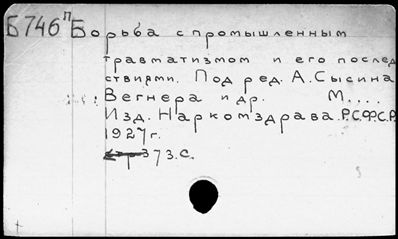 Б746п Борьба с промышленным
травматизмом и его послед
ствиями. Под ред. А. Сысина
Вегнера и др. М....
Изд. Наркомздрава. Р.С.Ф.С.Р.
1927г.
373.с.